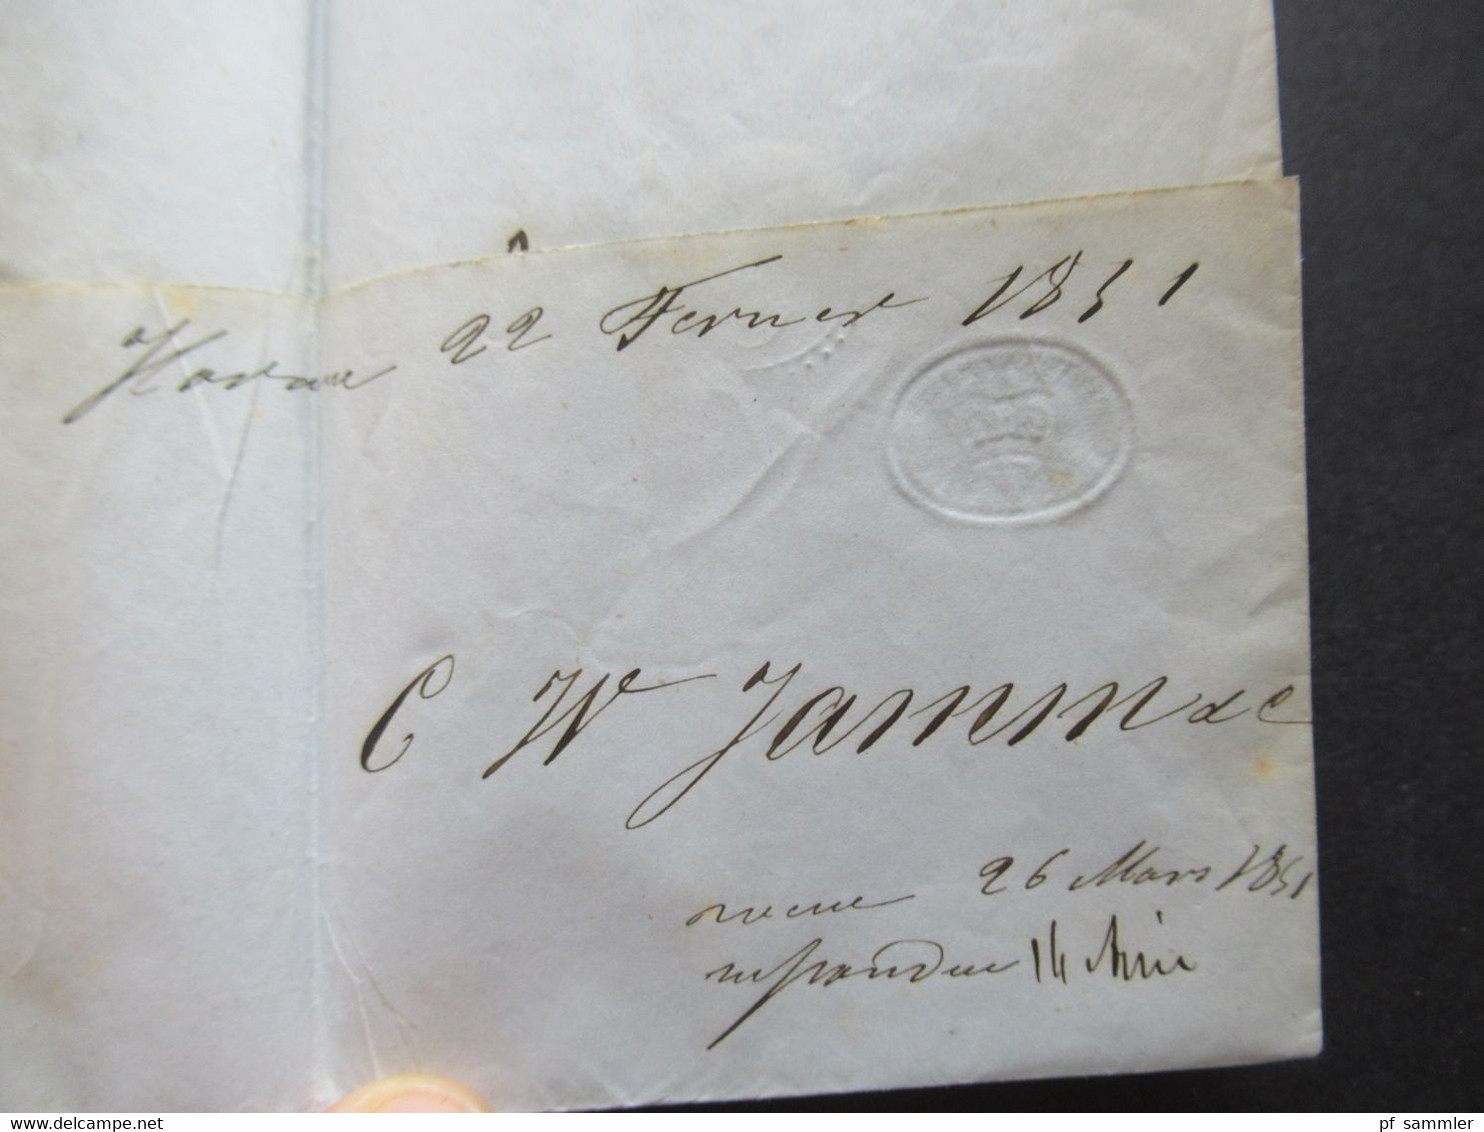 Havane 22 Fevrier 1851
C W Jamm & C
recue 26 Mars 1851
repondue 14
www.delcampe.net
pf_sammler